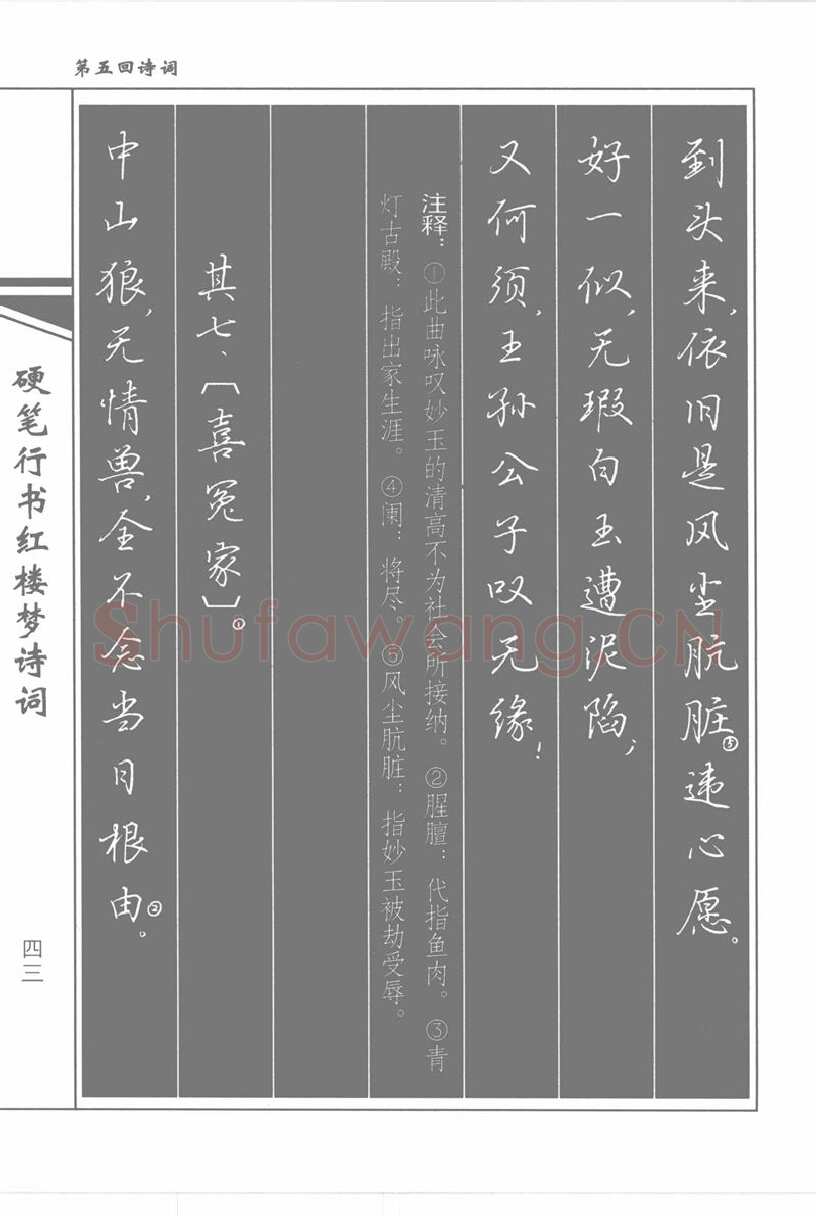 第五回诗词
到头来,依旧是风尘肮脏⑤违心愿。
好一似,无瑕白玉遭泥陷;
又何须,王孙公子叹无缘!
注释:①此曲咏叹妙玉的清高不为社会所接纳。②腥膻:代指鱼肉。③青
灯古殿:指出家生涯。④阑:将尽。⑤风尘肮脏:指妙玉被劫受辱。
其七、〔喜冤家〕①
中山狼,无情兽,全不念当日根由②。
硬笔行书红楼梦诗词
四三
Shufawang.CN